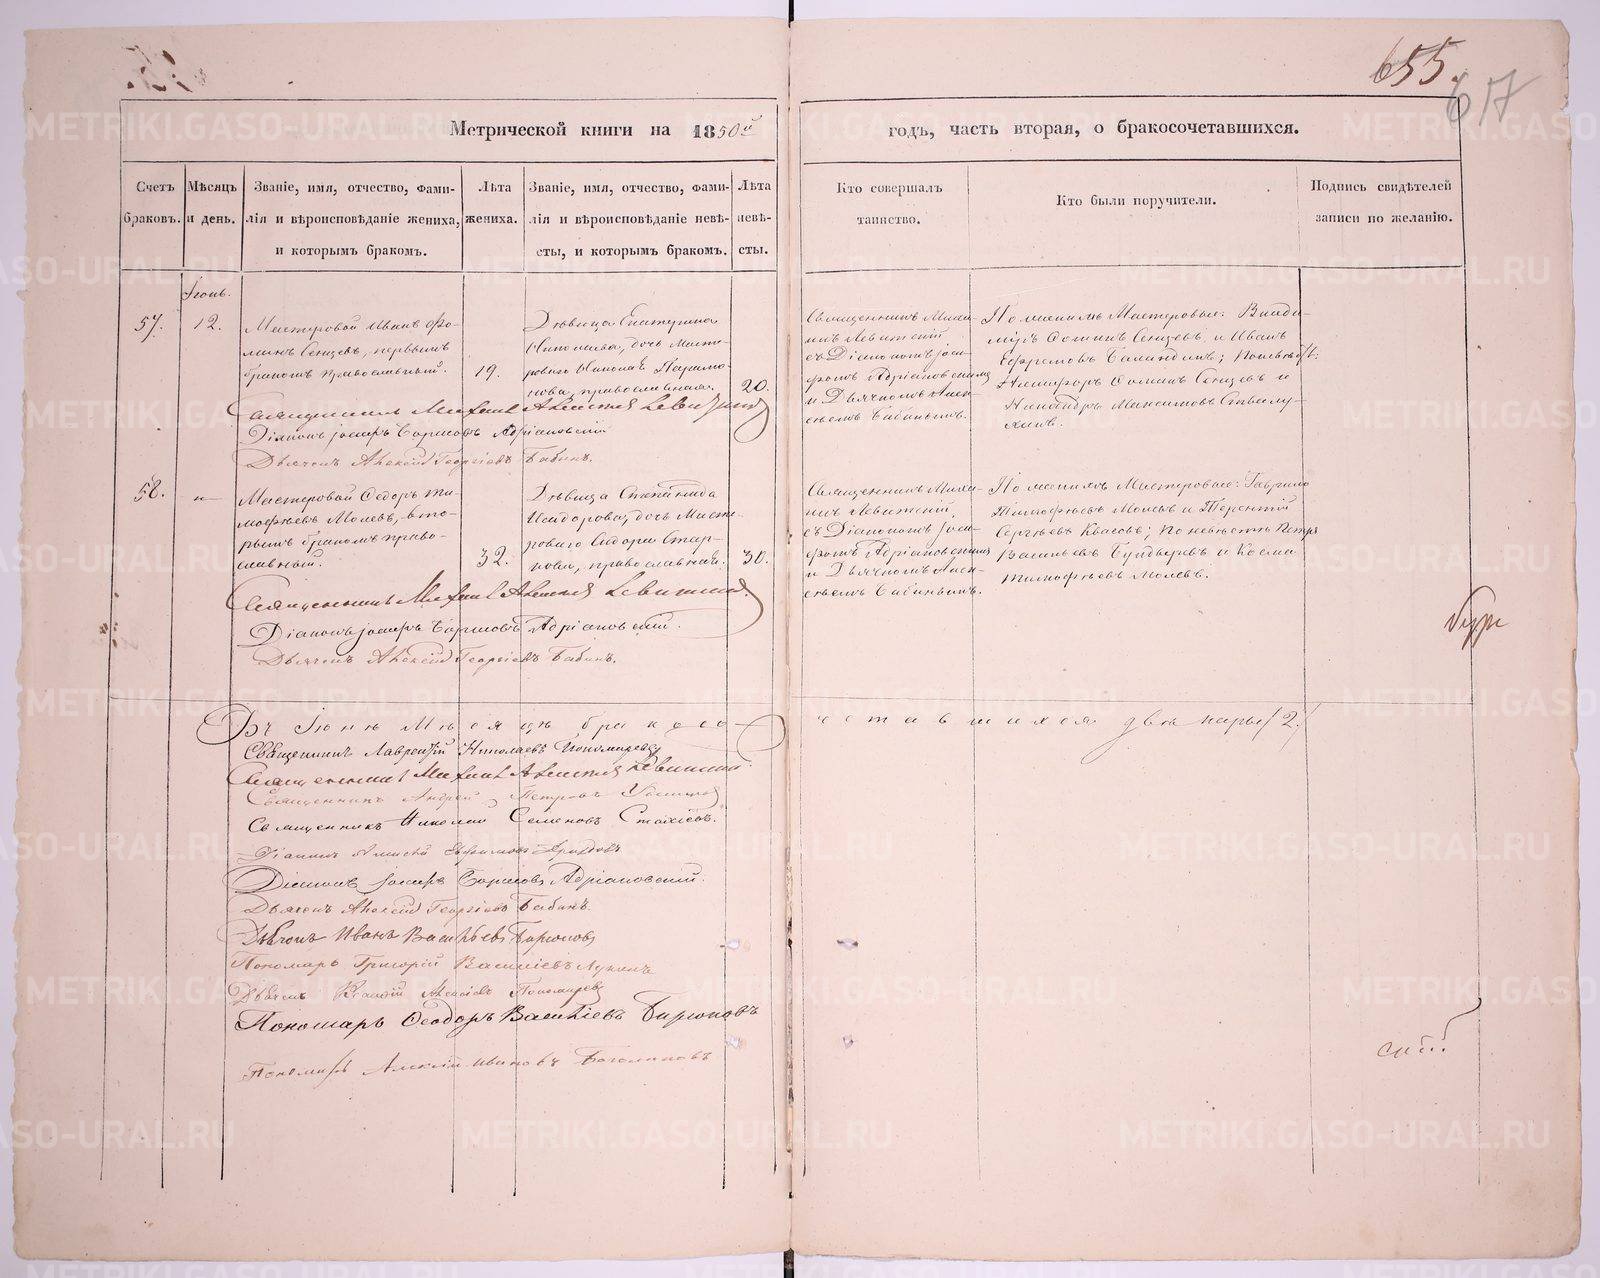 655.
617
Метрической книги на 1850й годъ, часть вторая, о бракосочетавшихся.
Счетъ браковъ.
Мѣсяцъ и день.
Званіе, имя, отчество, фами-
лія и вѣроисповѣданіе жениха,
и которымъ бракомъ.
Лѣта
жениха.
Званіе, имя, отчество, фами-
лія и вѣроисповѣданіе невѣ-
сты, и которымъ бракомъ.
Лѣта
невѣ-
сты.
Кто совершалъ
таинство.
Кто были поручители.
Подпись свидѣтелей
записи по желанію.
Іюнь.
57.
12.
Мастеровой Иванъ Фо-
минъ Сенцевъ, первымъ
бракомъ православный.
19.
Дѣвица Екатерина
Николаева, дочь Масте-
роваго Николая Парамо-
нова, православная.
20.
Священникъ Миха-
илъ Левитскій
съ Діакономъ Іоси-
фомъ Адріановскимъ
и Дьячкомъ Алек-
сѣемъ Бабинымъ.
По женихѣ Мастеровые: Влади-
міръ Фоминъ Сенцевъ и Иванъ
Ефремовъ Баландинъ; По невѣстѣ:
Никифоръ Фоминъ Сенцевъ и
Никандръ Максимовъ
Священникъ Михаилъ Алексѣевъ Левитскій
Діаконъ Іосифъ Борисовъ Адріановскій
Дьячекъ Алексій Георгіевъ Бабинъ.
58.
Мастеровой Ѳедоръ Ти-
мофѣевъ Молевъ, вто-
рымъ бракомъ право-
славный.
32.
Дѣвица Степанида
Исидорова, дочь Масте-
роваго Сидора Стар-
кова, православная.
30.
Священникъ Миха-
илъ Левитскій
съ Діакономъ Іоси-
фомъ Адріановскимъ
и Дьячкомъ Алек-
сѣемъ Бабинымъ.
По женихѣ Мастеровые: Гаврило
Тимофѣевъ Молевъ и Терентій
Сергѣевъ Квасовъ; По невѣстѣ Петръ
Васильевъ и Косма
Тимофѣевъ Молевъ.
Священникъ Михаилъ Алексѣевъ Левитскій.
Діаконъ Іосифъ Борисовъ Адріановскій.
Дьячекъ Алексій Георгіевъ Бабинъ.
Въ Іюнѣ мѣсяцѣ бракосо-
четавшихся двѣ пары /2./
Священникъ Лаврентій Николаевъ Пономаревъ
Священникъ Михаилъ Алексѣевъ Левитскій.
Священникъ Андрей Петровъ
Священникъ Николай Семеновъ Стахіевъ.
Діаконъ Алексій
Діаконъ Іосифъ Борисовъ Адріановскій.
Дьячекъ Алексій Георгіевъ Бабинъ.
Дьячекъ Иванъ Васильевъ Бирюковъ
Пономарь Григорій Василіевъ Лукинъ
Дьячекъ Алексіевъ Пономаревъ
Пономарь Ѳеодоръ Василіевъ Бирюковъ
Пономарь Алексій Ивановъ Боголюбовъ
METRIKI.GASO-URAL.RU